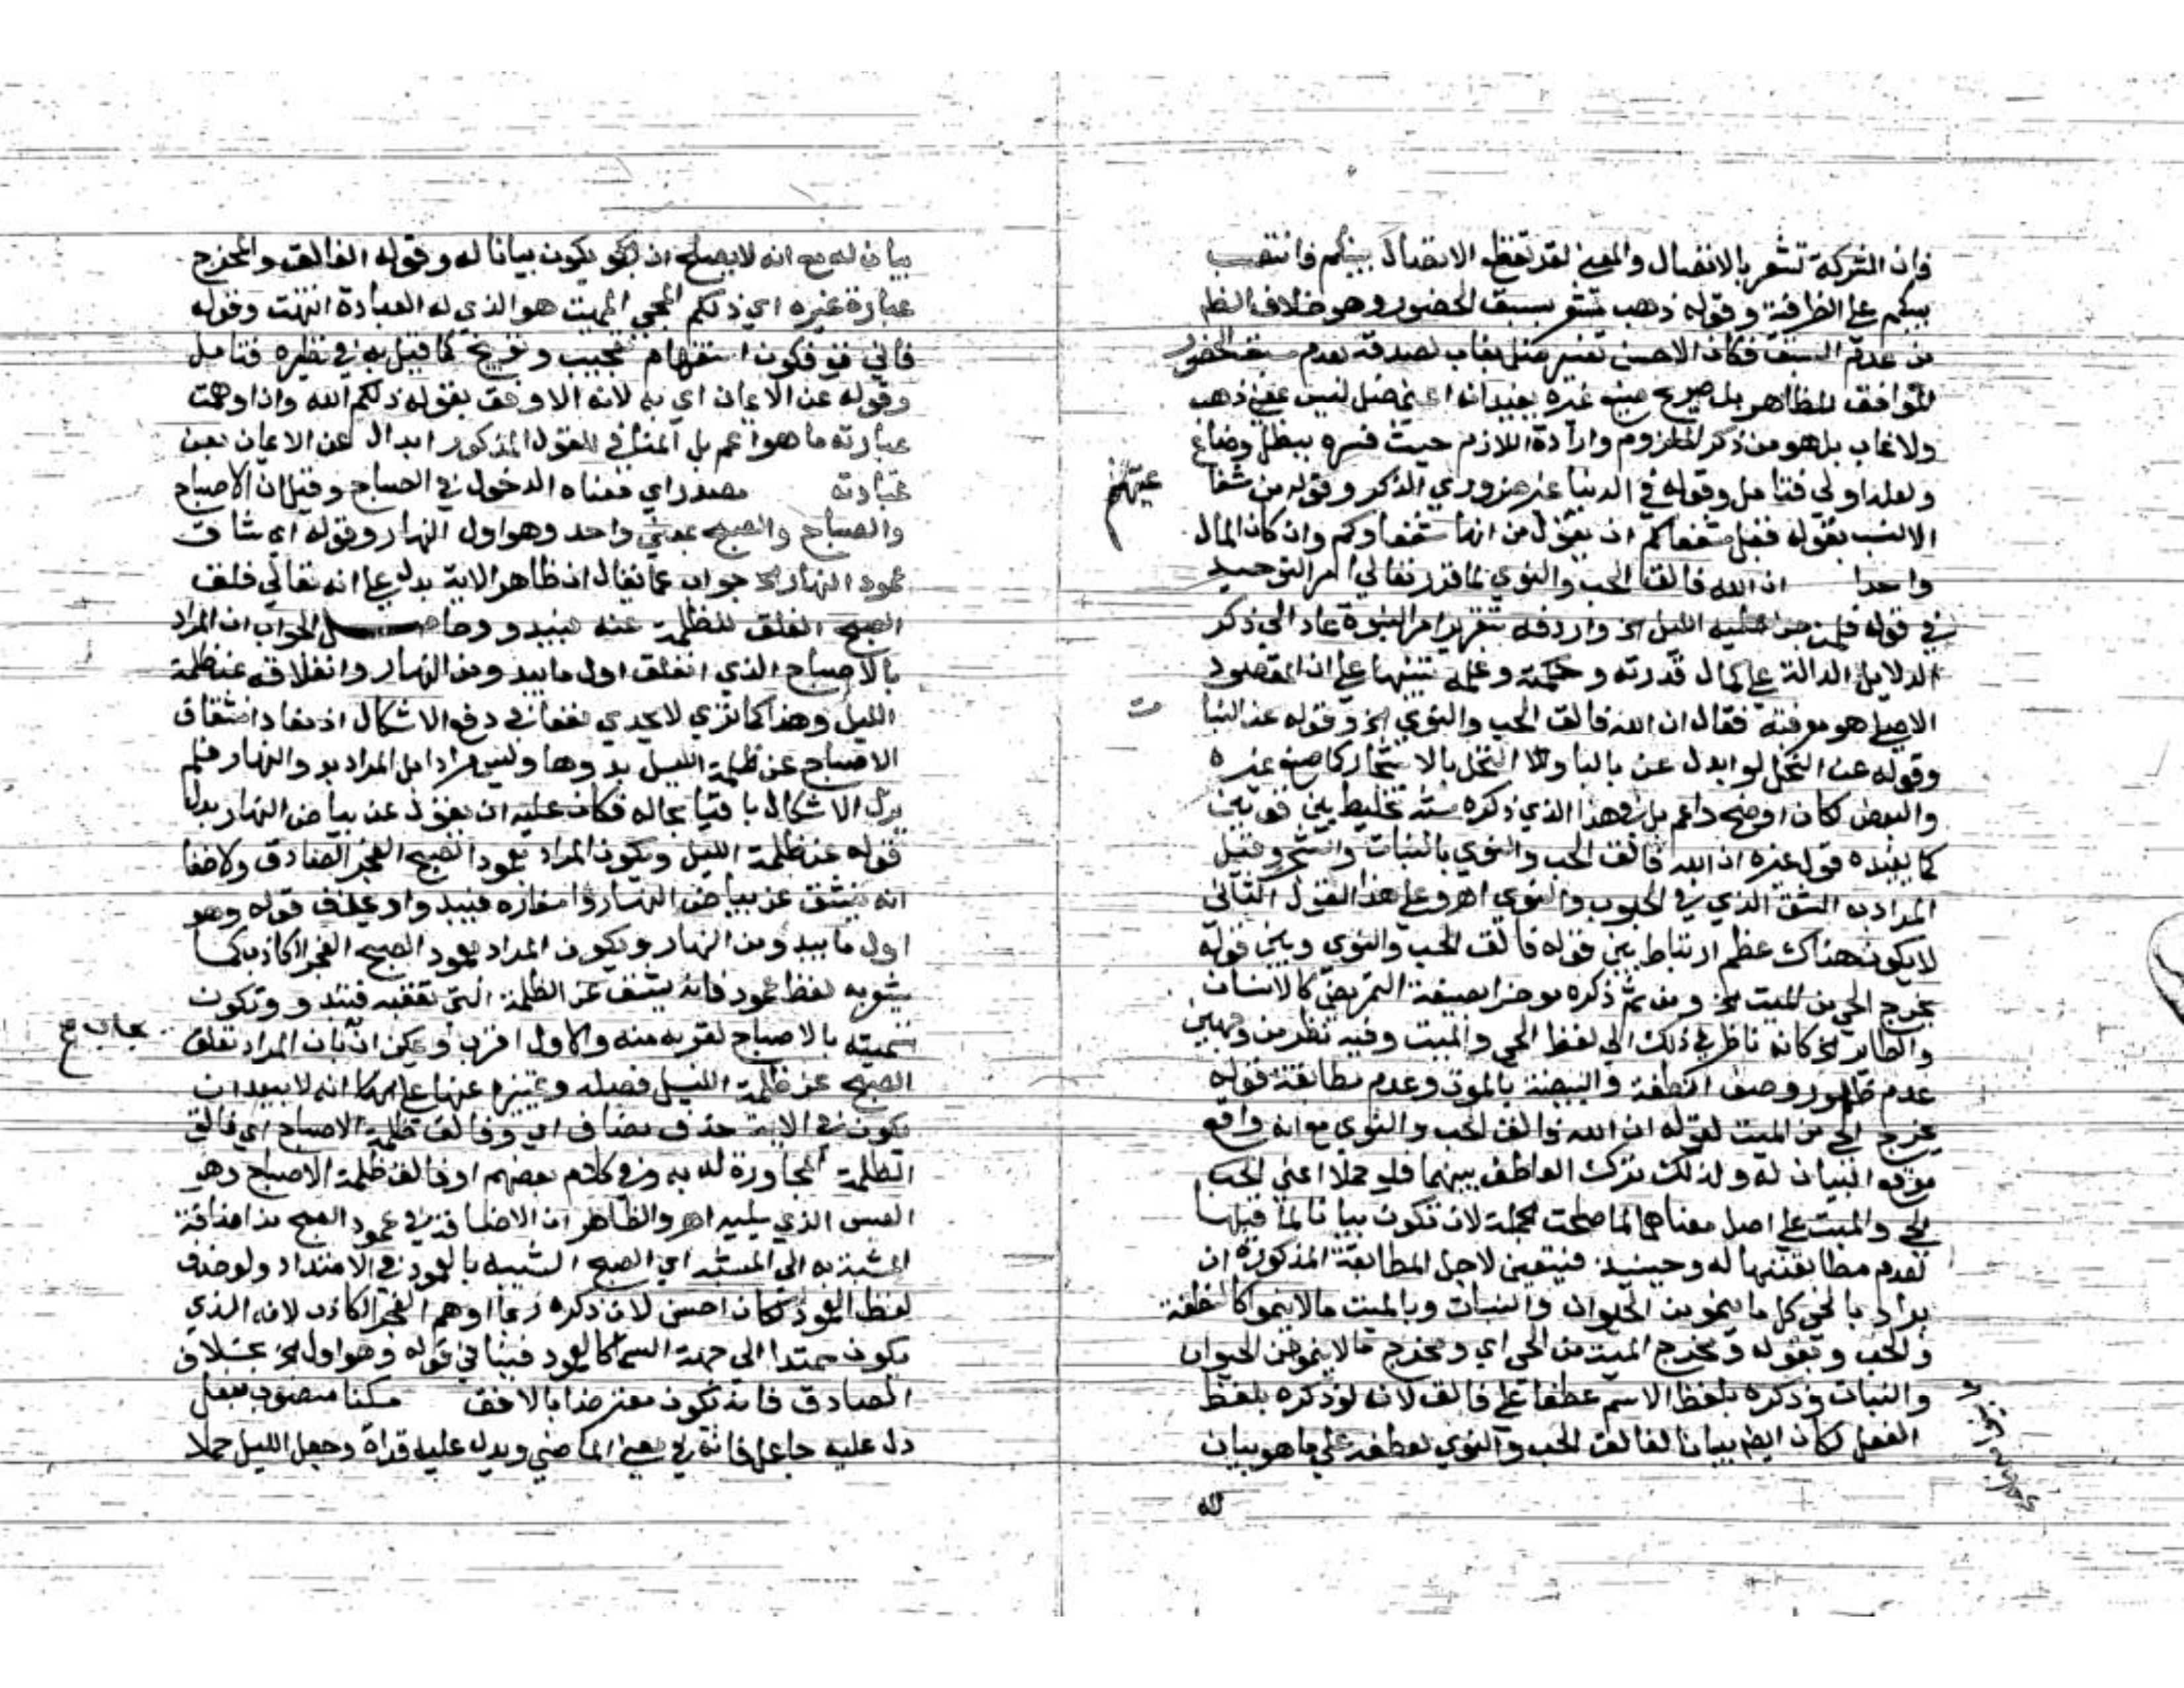 فان الشركة تشعر بالاتصال والمعنى لقد تقطع الاتصال بينكم فانتصب
بينكم على الظرفية وقوله ذهب تشعر بسبق الحضور وهو خلاف الظم
من عدم السبق فكان الاحسن تفسير ضل بغاب لصدقه بعدم سبق الحضور
الموافق للظاهر بل صريح غيره يفيد ان ضل ليس بمعنى ذهب
ولا غاب بل هو من ذكر الملزوم وارادة اللازم حيث فسره ببطل وضاع
ولعله اولى فتامل وقوله في الدنيا غير ضروري الذكر وقوله من شفا
عتهم
الانسب بقوله قبل شفعاكم ان يقول من انها شفعاوكم وان كان المال
واحدا ان الله فالق الحب والنوى لما قرر تعالى امر التوحيد
في قوله فلما جن عليه الليل الخ واردفه بتقرير امر النبوة عاد الى ذكر
الدلايل الدالة على كمال قدرته وحكمته وعلمه تنبيها على ان المقصود
الاصلي هو معرفته فقال ان الله فالق الحب والنوى الخ وقوله عن النبا
ت
وقوله عن النخل لو ابدل عن بالبا والنخل بالاشجار كما صنع غيره
والبعض لكان اوضح واعم بل وهذا الذي ذكره تخليط بين قولين
كما يفيده قول غيره ان الله فالق الحب والنوى بالنبات والشجر وقيل
المراد به الشق الذي في الحبوب والنوى اهـ وعلى هذا القول الثاني
لا يكون هناك عظم ارتباط بين قوله فالق الحب والنوى وبين قوله
يخرج الحي من الميت الخ ومن ثم ذكره موخرا بصيغة التمريض كالانسان
والطائر الخ كانه ناظر في ذلك الى لفظ الحي والميت وفيه نظر من وجهين
عدم ظهور وصف النطفة والبيضة بالموت وعدم مطابقة قوله
يخرج الحي من الميت لقوله ان الله فالق الحب والنوى مع انه واقع
موقع البيان له ولذلك ترك العاطف بينهما فلو حملا اعني لحب
الحي والميت على اصل معناهما لما صلحت الجملة لان تكون بيانا لما قبلها
لعدم مطابقتها له وحينيذ فيتعين لاجل المطابقة المذكورة ان
يراد بالحي كل ما ينمو من الحيوان والنبات وبالميت ما لا ينمو كالنطفة
والحب وبقوله ومخرج الميت من الحي اي ومخرج ما لا ينمو من الحيوان
والنبات وذكره بلفظ الاسم عطفا على فالق لانه لو ذكره بلفظ
الفعل لكان ايضا بيانا لفالق الحب والنوى لعطفه على ما هو بيان
له
بيان له مع انه لا يصلح ان يكون بيانا له وقوله الفالق والمخرج
عبارة غيره اي ذلكم المحي المميت هو الذي له العبادة انتهت وقوله
فاني تو فكون استفهام تعجيب وتوبيخ كما قيل به في نظيره فتامل
وقوله عن الايمان اي به لانه الاوفق بقوله ذلكم الله وان اوهمت
عبارته ما هو اعم بل المناسب للقول المذكور ابدال عن الايمان بعن
عبادته مصدر اي معناه الدخول في الصباح وقيل ان الاصباح
والصباح والصبح بمعنى واحد وهو اول النهار وقوله اي شاق
عمود النهار الخ جواب عما يقال ان ظاهر الاية يدل على انه تعالى فلق
الصبح الفلق للظلمة عنه فيبدو وحاصل الجواب ان المراد
بالاصباح الذي انفلق اول ما يبدو من النهار وانفلاقه عن ظلمة
الليل وهذا كما ترى لا يجدي نفعا في دفع الاشكال اذ مفاد انشقاق
الاصباح عن ظلمة الليل بدوها وليس مرادا بل المراد بدو النهار فلم
يزل الاشكال باقيا بحاله فكان عليه ان يقول عن بياض النهار بدل
قوله عن ظلمة الليل ويكون المراد بعمود الصبح الفجر الصادق ولا خفا
انه ينشق عن بياض النهار واسفاره فيبدو او يحذف قوله وهو
اول ما يبدو من النهار ويكون المراد بعمود الصبح الفجر الكاذب كما
يشير به لفظ عمود فانه ينشق عن الظلمة التي تعقبه فتبدو وتكون
تسميته بالاصباح لقربه منه والاول اقرب ويمكن ان المراد بفلق
يجاب ع
الصبح عن ظلمة الليل فصله وتمييزه عنها كما انه لا يبعد ان
يكون في الاية حذف مضاف اي وفالق ظلمة الاصباح اي فالق
الظلمة المجاورة له به وفي كلام بعضهم او فالق ظلمة الاصباح وهو
الغبش الذي يليه اهـ والظاهر ان الاضافة في عمود الصبح من اضافة
المشبه به الى المشبه اي الصبح الشبيه بالعمود في الامتداد ولو حذف
لفظ العمود لكان احسن لان ذكره ربما اوهم الفجر الكاذب لانه الذي
يكون ممتدا الى جهة السما كالعمود فينافي قوله وهو اول الخ بخلاف
الصادق فانه يكون معترضا بالافق سكنا منصوب بفعل
دل عليه جاعل فانه في معنى الماضي ويدل عليه قراة وجعل الليل حملا